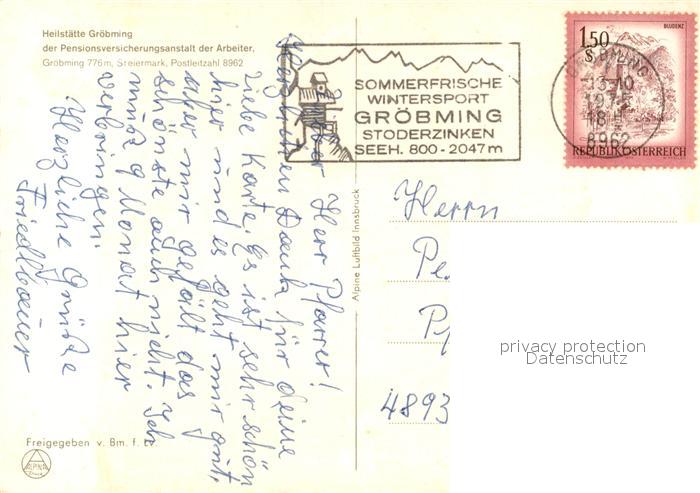 Heilstätte Gröbming
der Pensionsversicherungsanstalt der Arbeiter,
Gröbming 776m, Steiermark, Postleitzahl 8962
Lieber Herr Pfarrer!
Herzlichen Dank für deine
liebe Karte. Es ist sehr schön
hier und es geht mir gut,
aber mir gefällt das
schönste auch nicht. Ich
muß 9 Monat hier
verbringen.
Herzliche Grüße
Friedlbauer
Freigegeben v. Bm. f. LV.
ALPINA
Alpine Luftbild Innsbruck
SOMMERFRISCHE
WINTERSPORT
GRÖBMING
STODERZINKEN
SEEH. 800-2047m
BLUDENZ
1.50
S
REPUBLIK ÖSTERREICH
-13.10
18
8962
Herrn
Pe
Pf
4893
privacy protection
Datenschutz